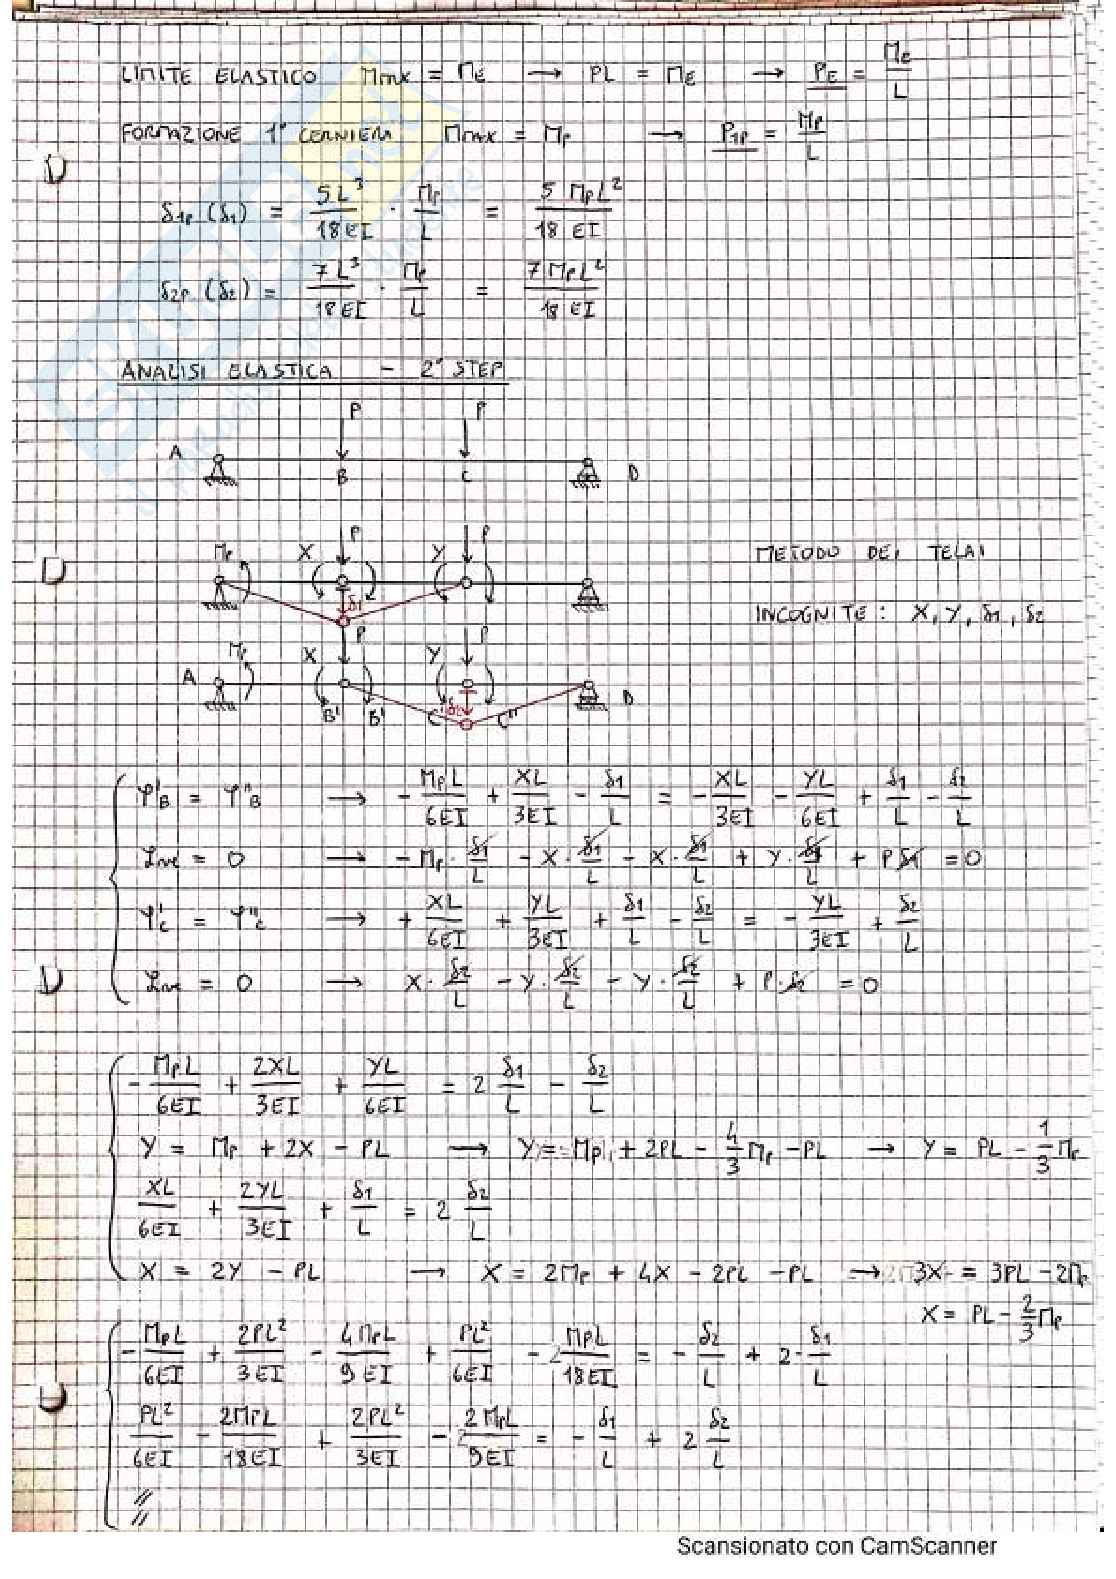 LIMITE ELASTICO Mmax = ME → PL = ME → PE = ME/L
FORMAZIONE 1° CERNIERA Mmax = Mp → P1p = Mp/L
δ1p (δ1) = 5L³/18EI · Mp/L = 5 MpL²/18 EI
δ2p (δ2) = 7L³/18EI · Mp/L = 7 MpL²/18 EI
ANALISI ELASTICA - 2° STEP
P P
A B C D
Mp X P Y P
δ1
METODO DEI TELAI
INCOGNITE: X, Y, δ1, δ2
P P
A Mp X Y D
B' B' C' δ2 C"
φ'B = φ"B → - MpL/6EI + XL/3EI - δ1/L = - XL/3EI - YL/6EI + δ1/L - δ2/L
Lve = 0 → - Mp · δ1/L - X · δ1/L - X · δ1/L + Y · δ1/L + Pδ1 = 0
φ'c = φ"c → + XL/6EI + YL/3EI + δ1/L - δ2/L = - YL/3EI + δ2/L
Lve = 0 → X · δ2/L - Y · δ2/L - Y · δ2/L + P · δ2 = 0
- MpL/6EI + 2XL/3EI + YL/6EI = 2 δ1/L - δ2/L
Y = Mp + 2X - PL → Y = Mp + 2PL - 4/3 Mp - PL → Y = PL - 1/3 Mp
XL/6EI + 2YL/3EI + δ1/L = 2 δ2/L
X = 2Y - PL → X = 2Mp + 4X - 2PL - PL → 3X = 3PL - 2Mp
X = PL - 2/3 Mp
- MpL/6EI + 2PL²/3EI - 4MpL/9EI + PL²/6EI - MpL/18EI = - δ2/L + 2 · δ1/L
PL²/6EI - 2MpL/18EI + 2PL²/3EI - 2MpL/9EI = - δ1/L + 2 δ2/L
//
//
Scansionato con CamScanner